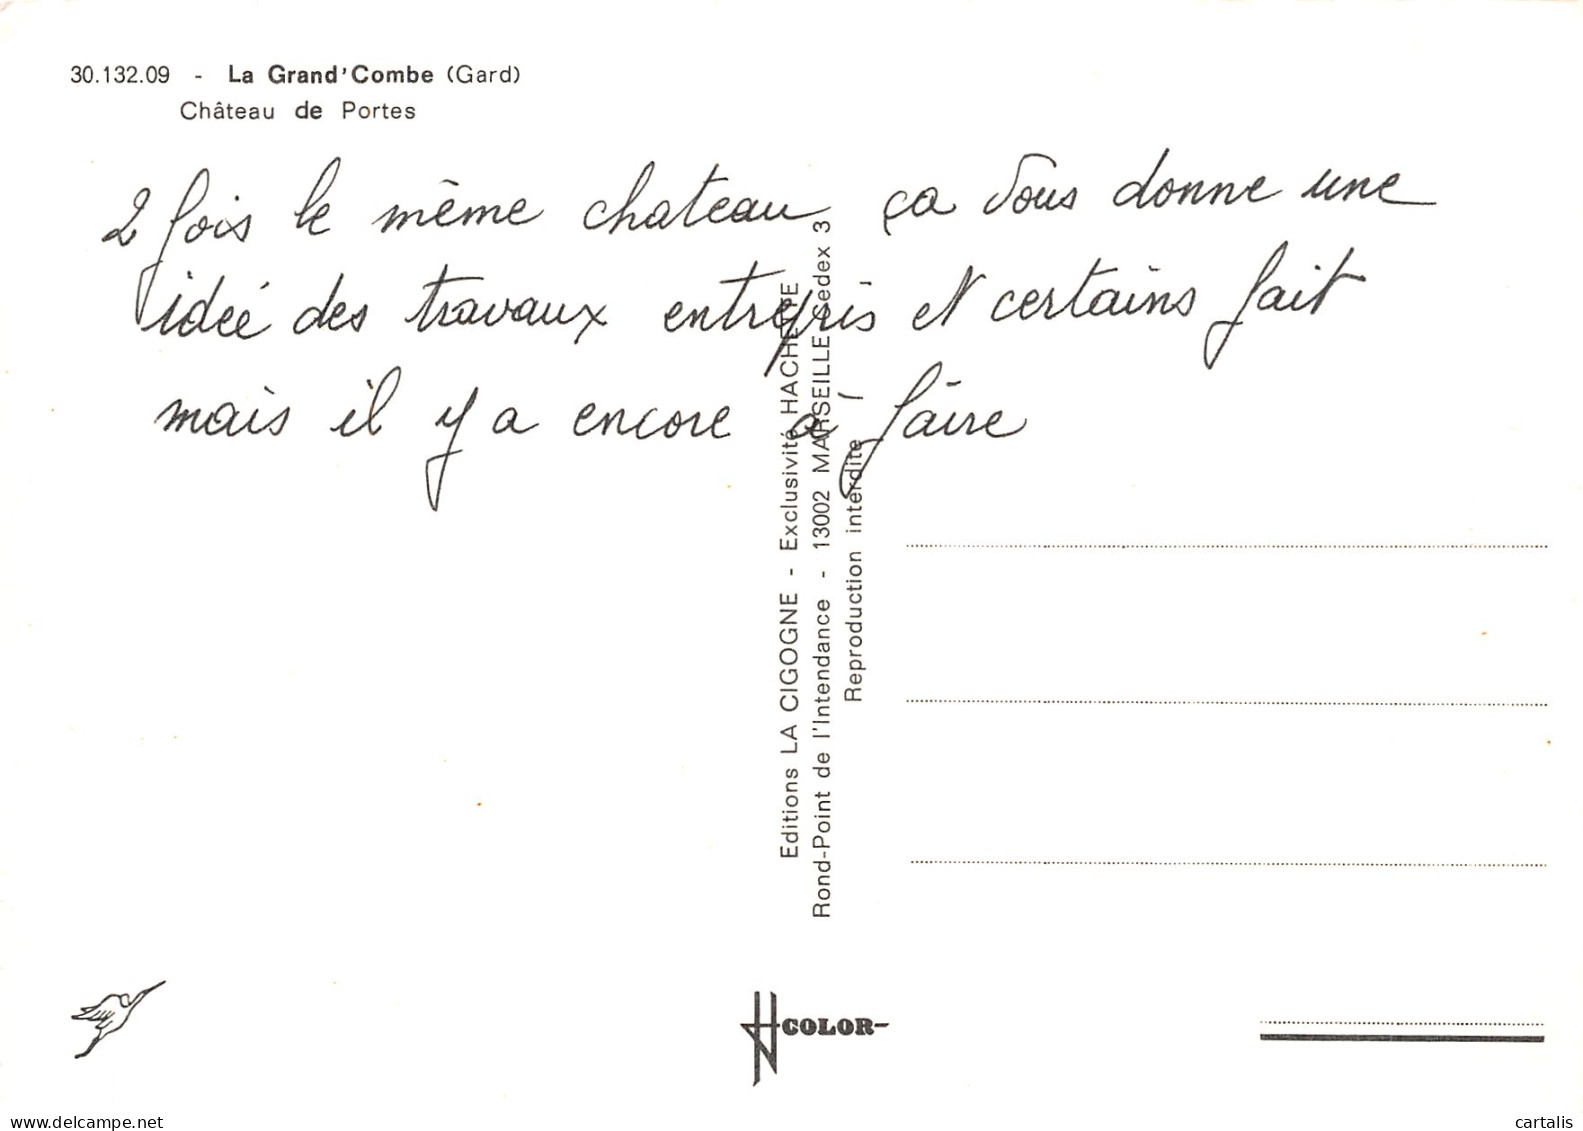 30.132.09 - La Grand'Combe (Gard)
Château de Portes
2 fois le même chateau ça vous donne une
idée des travaux entrepris et certains fait
mais il y a encore à faire
Editions LA CIGOGNE - Exclusivité HACHETTE
Rond-Point de l'Intendance - 13002 MARSEILLE Cedex 3
Reproduction interdite
COLOR
www.delcampe.net
cartalis